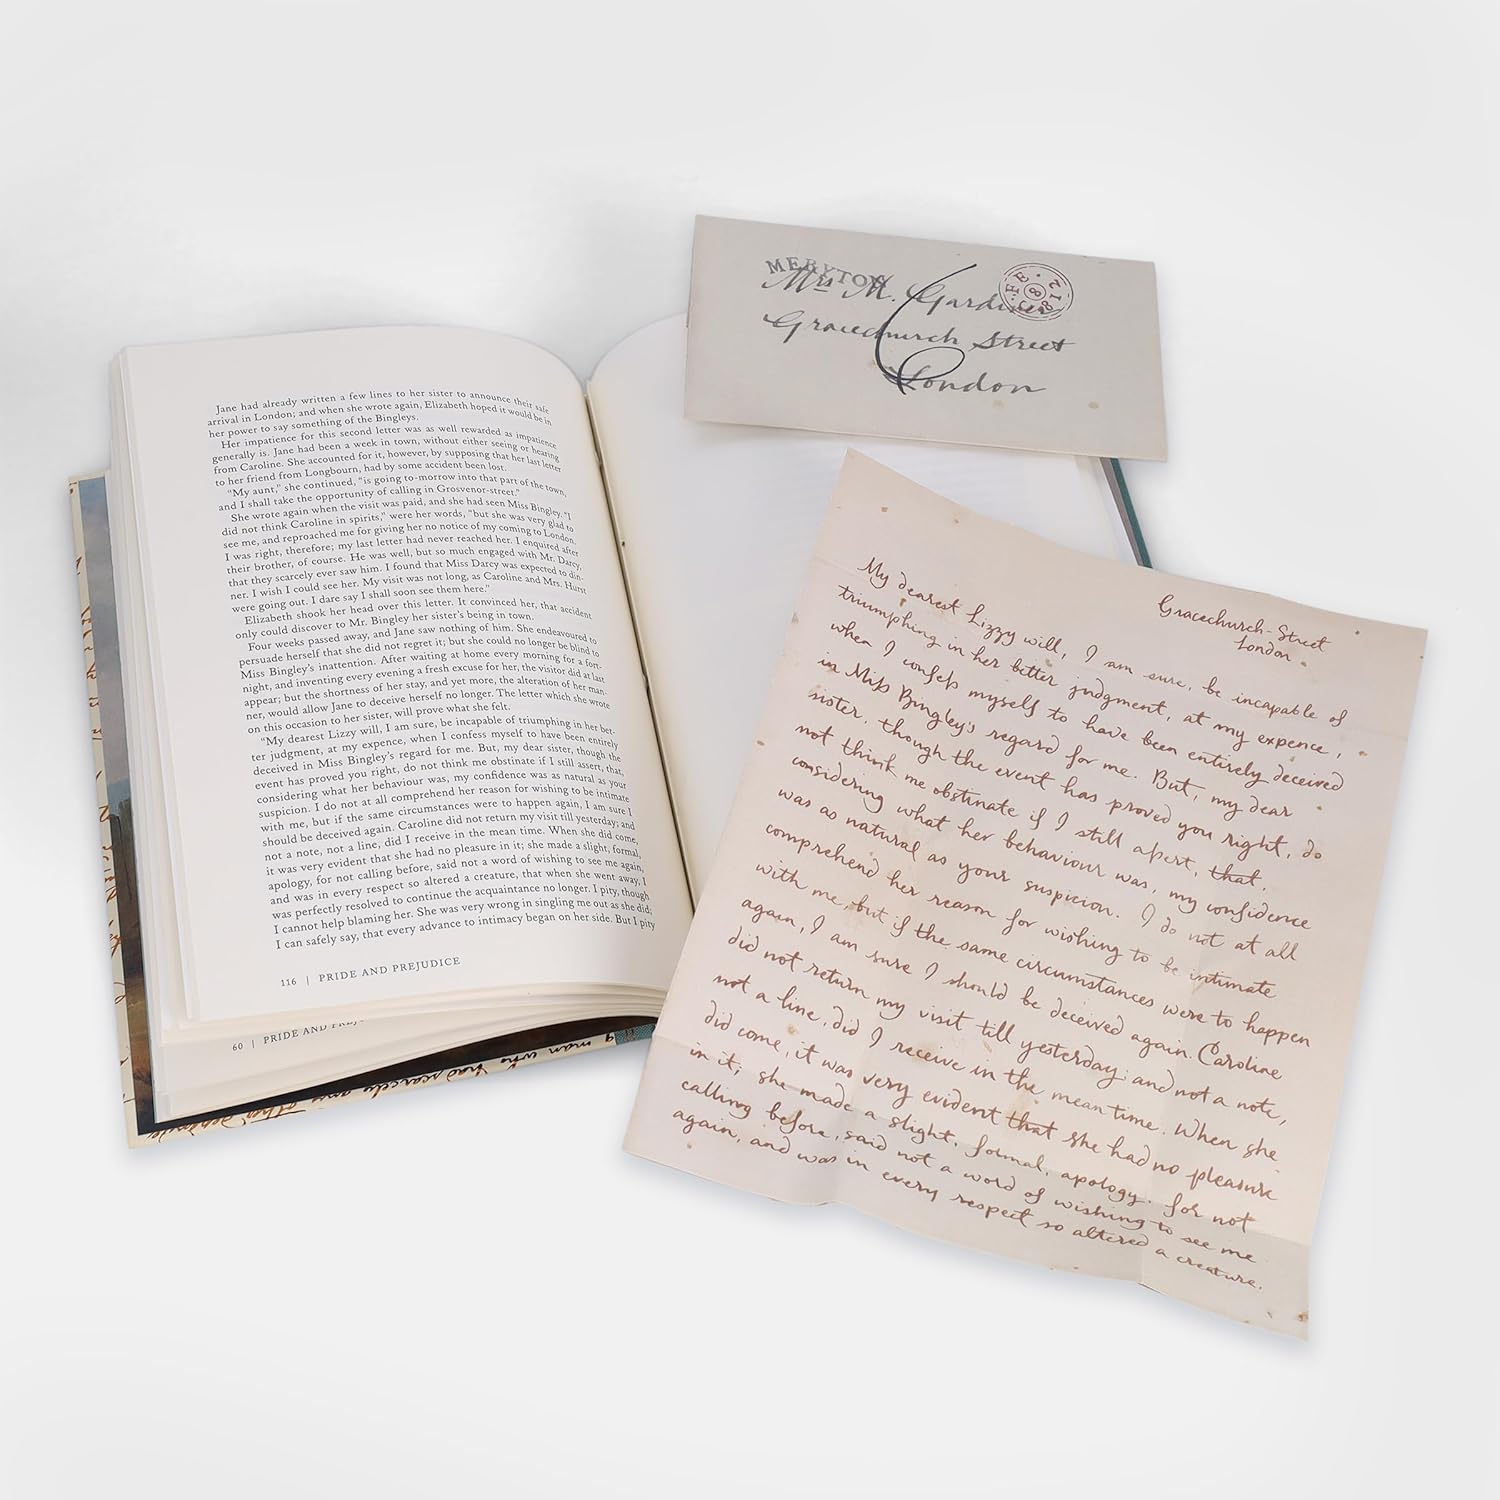 Jane had already written a few lines to her sister to announce their safe
arrival in London; and when she wrote again, Elizabeth hoped it would be in
her power to say something of the Bingleys.
Her impatience for this second letter was as well rewarded as impatience
generally is. Jane had been a week in town, without either seeing or hearing
from Caroline. She accounted for it, however, by supposing that her last letter
to her friend from Longbourn, had by some accident been lost.
"My aunt," she continued, "is going to-morrow into that part of the town,
and I shall take the opportunity of calling in Grosvenor-street."
She wrote again when the visit was paid, and she had seen Miss Bingley. "I
did not think Caroline in spirits," were her words, "but she was very glad to
see me, and reproached me for giving her no notice of my coming to London.
I was right, therefore; my last letter had never reached her. I enquired after
their brother, of course. He was well, but so much engaged with Mr. Darcy,
that they scarcely ever saw him. I found that Miss Darcy was expected to din-
ner. I wish I could see her. My visit was not long, as Caroline and Mrs. Hurst
were going out. I dare say I shall soon see them here."
Elizabeth shook her head over this letter. It convinced her, that accident
only could discover to Mr. Bingley her sister's being in town.
Four weeks passed away, and Jane saw nothing of him. She endeavoured to
persuade herself that she did not regret it; but she could no longer be blind to
Miss Bingley's inattention. After waiting at home every morning for a fort-
night, and inventing every evening a fresh excuse for her, the visitor did at last
appear; but the shortness of her stay, and yet more, the alteration of her man-
ner, would allow Jane to deceive herself no longer. The letter which she wrote
on this occasion to her sister, will prove what she felt.
"My dearest Lizzy will, I am sure, be incapable of triumphing in her bet-
ter judgment, at my expence, when I confess myself to have been entirely
deceived in Miss Bingley's regard for me. But, my dear sister, though the
event has proved you right, do not think me obstinate if I still assert, that,
considering what her behaviour was, my confidence was as natural as your
suspicion. I do not at all comprehend her reason for wishing to be intimate
with me, but if the same circumstances were to happen again, I am sure I
should be deceived again. Caroline did not return my visit till yesterday; and
not a note, not a line, did I receive in the mean time. When she did come,
it was very evident that she had no pleasure in it; she made a slight, formal,
apology, for not calling before, said not a word of wishing to see me again,
and was in every respect so altered a creature, that when she went away, I
was perfectly resolved to continue the acquaintance no longer. I pity, though
I cannot help blaming her. She was very wrong in singling me out as she did;
I can safely say, that every advance to intimacy began on her side. But I pity
116 | PRIDE AND PREJUDICE
60 | PRIDE AND
man who
had scarcely any other
MERYTON
Mrs M. Gardiner
Gracechurch Street
London
FE 8 1812
Gracechurch-Street
London
My dearest Lizzy will, I am sure, be incapable of
triumphing in her better judgment, at my expence,
when I confess myself to have been entirely deceived
in Miss Bingley's regard for me. But, my dear
sister, though the event has proved you right, do
not think me obstinate if I still assert, that,
considering what her behaviour was, my confidence
was as natural as your suspicion. I do not at all
comprehend her reason for wishing to be intimate
with me, but if the same circumstances were to happen
again, I am sure I should be deceived again. Caroline
did not return my visit till yesterday; and not a note,
not a line, did I receive in the mean time. When she
did come, it was very evident that she had no pleasure
in it; she made a slight, formal, apology, for not
calling before, said not a word of wishing to see me
again, and was in every respect so altered a creature.